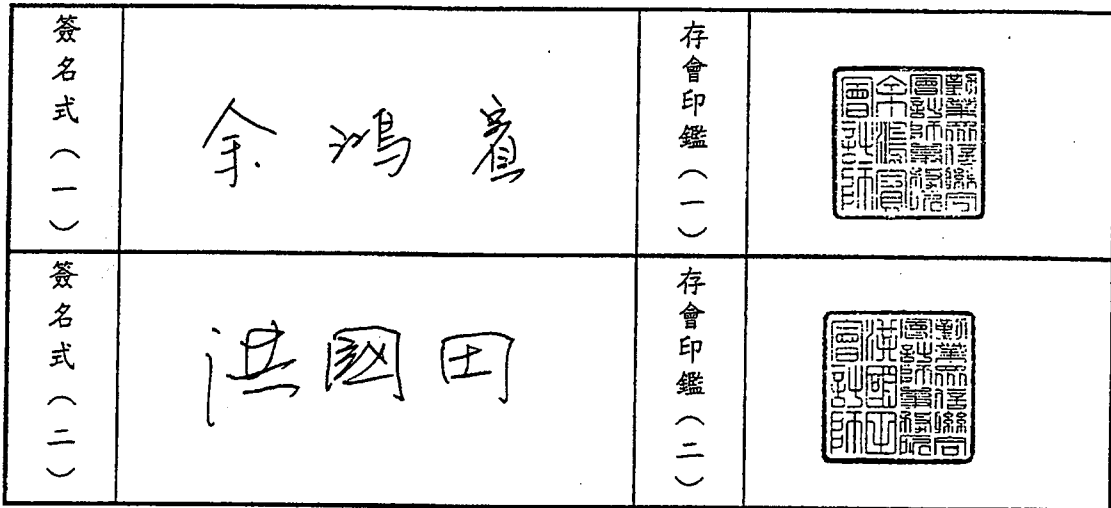 簽名式（一）
余鴻賓
存會印鑑（一）
勤業眾信聯合
會計師事務所
余鴻賓
會計師
簽名式（二）
洪國田
存會印鑑（二）
勤業眾信聯合
會計師事務所
洪國田
會計師